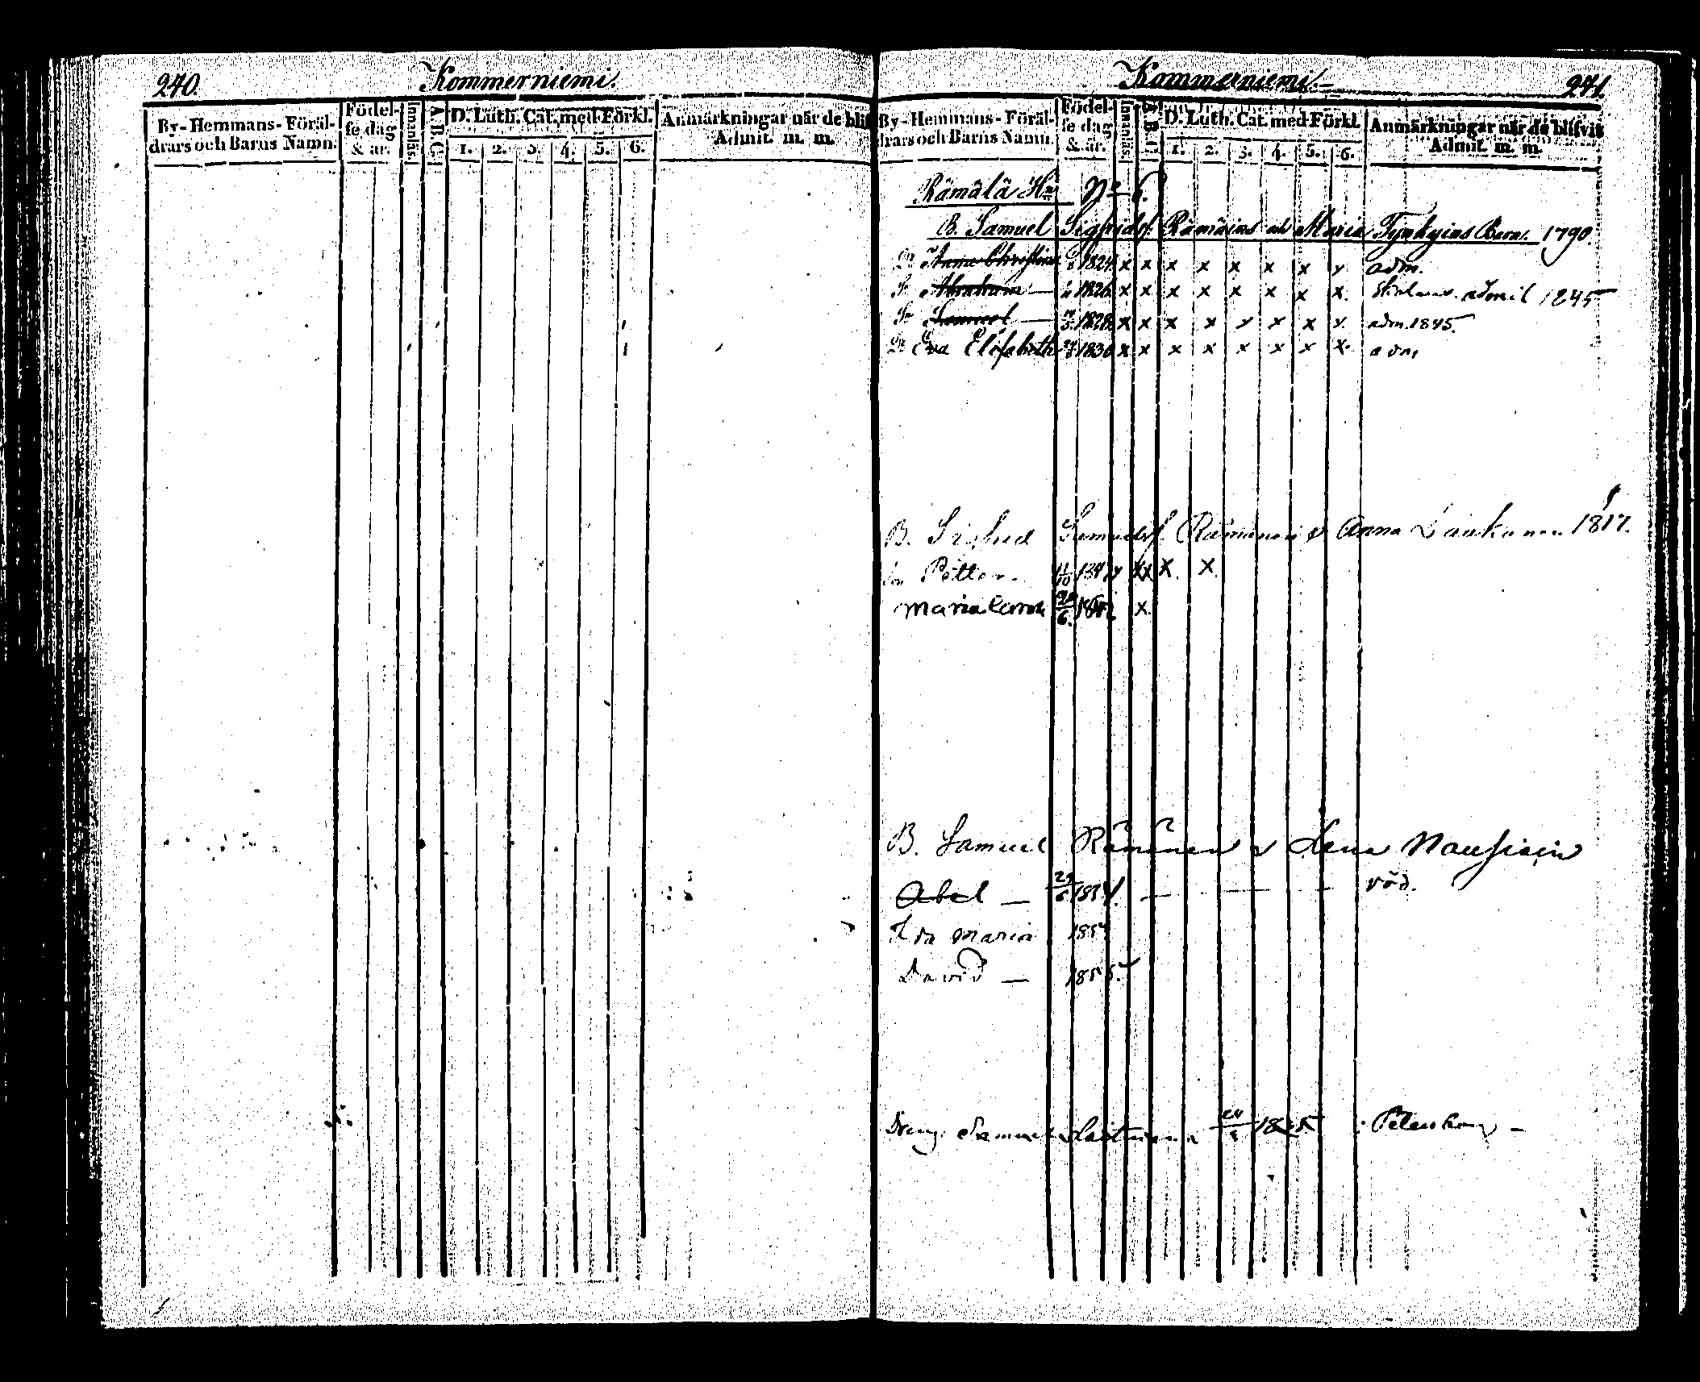 240. Kommerniemi.
By-Hemmans-Föräl-
drars och Barns Namn.
Födel-
se dag
& år.
Innanläs.
A. B. C.
D. Luth. Cat. med Förkl.
1. 2. 3. 4. 5. 6.
Anmärkningar når de blif
Admit. m. m.
Kommerniemi 241.
By-Hemmans-Föräl-
drars och Barns Namn.
Födel-
se dag
& år.
Innanläs.
A. B. C.
D. Luth. Cat. med Förkl.
1. 2. 3. 4. 5. 6.
Anmärkningar når de blifvit
Admit. m. m.
Rämälä Hn No 6.
B. Samuel Sigfridsf. Rämäins och Maria Tynkyins Barn. 1790.
Dr Anna Christina 1824 x x x x x x x x adm.
Sn Abraham — 1826 x x x x x x x x admit 1845
Sn Samuel — 1828 x x x x x x x x adm. 1845.
Dr Eva Elisabeth 1830 x x x x x x x x adm
B. Sigfrid Samuelsf. Rämänen & Anna 1817.
Sn Petter 11/10 x x x x
Maria x
B. Samuel Rämänen & Lena
Abel — — — — död.
Ida Maria 185
David — 1855.
Dreng Samuel